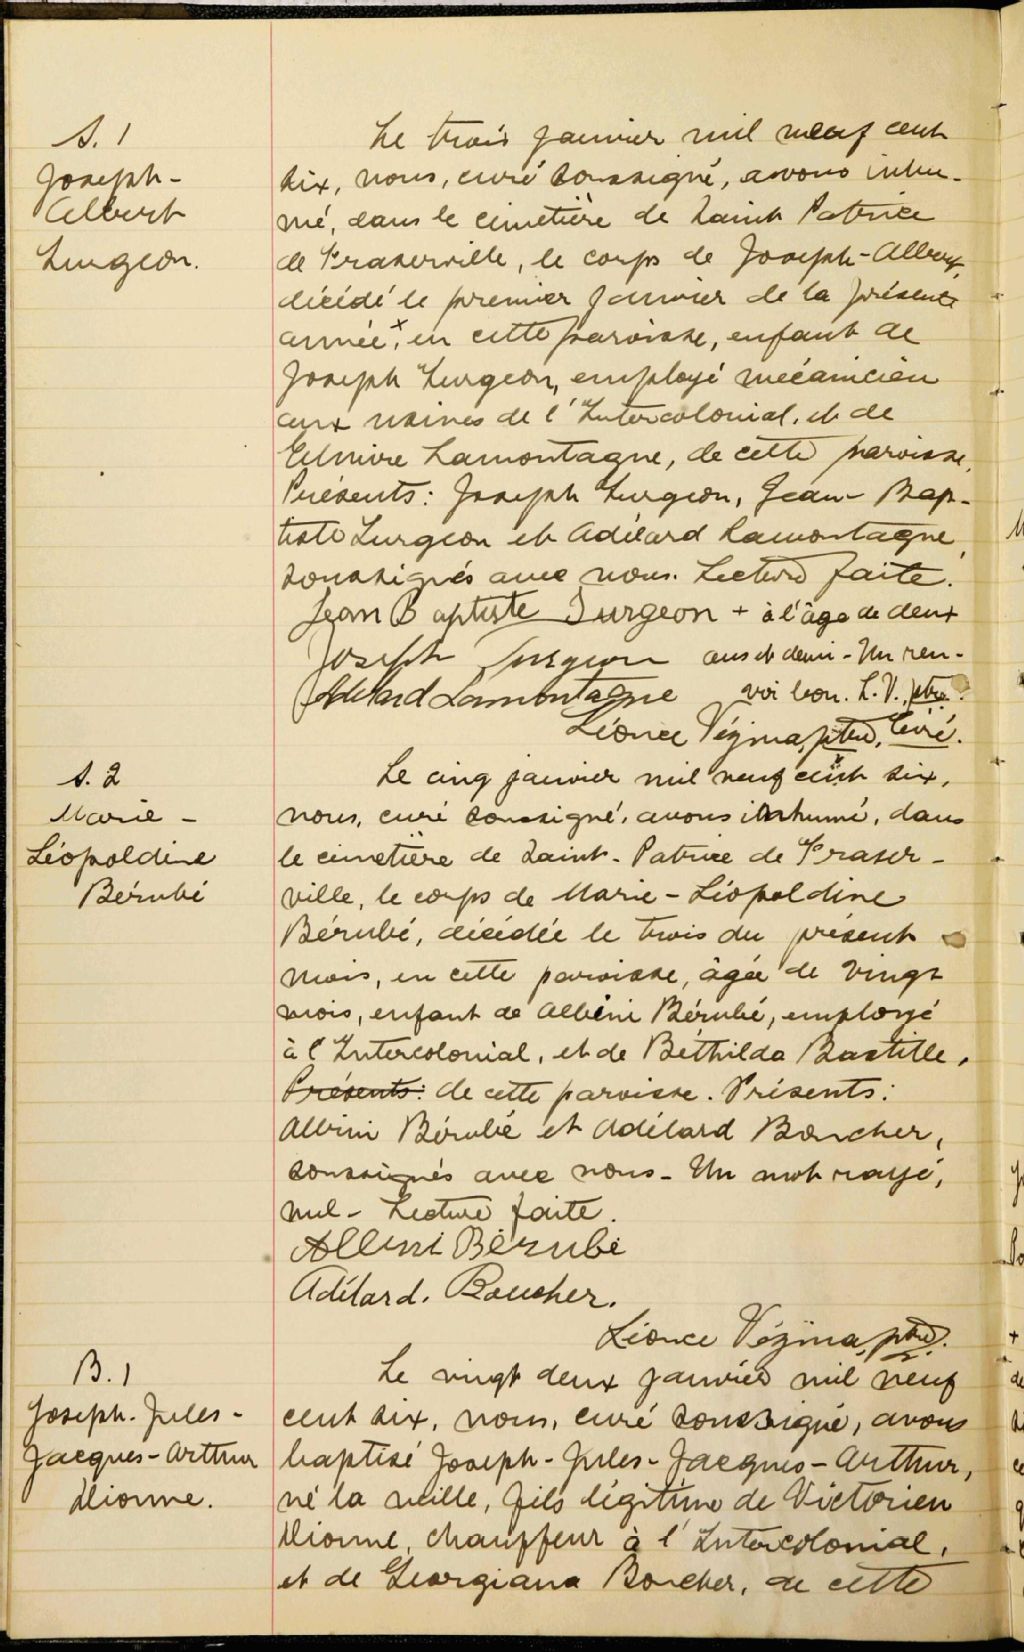 S. 1
Joseph-
Albert
Turgeon.
Le trois janvier mil neuf cent
six, nous, curé soussigné, avons inhu-
mé, dans le cimetière de Saint Patrice
de Fraserville, le corps de Joseph-Albert,
décédé le premier janvier de la présente
année,+ en cette paroisse, enfant de
Joseph Turgeon, employé mécanicien
aux usines de l'Intercolonial, et de
Elmire Lamontagne, de cette paroisse.
Présents: Joseph Turgeon, Jean-Bap-
tiste Turgeon et Adélard Lamontagne,
soussignés avec nous. Lecture faite.
Jean Baptiste Turgeon + à l'âge de deux
Joseph Turgeon ans et demi - Un ren-
Adelard Lamontagne voi bon. L. V., ptre.
Léonce Vézina, ptre, curé.
S. 2
Marie-
Léopoldine
Bérubé
Le cinq janvier mil neuf cent six,
nous, curé soussigné, avons inhumé, dans
le cimetière de Saint-Patrice de Fraser-
ville, le corps de Marie-Léopoldine
Bérubé, décédée le trois du présent
mois, en cette paroisse, âgée de vingt
mois, enfant de Albéni Bérubé, employé
à l'Intercolonial, et de Béthilda Bastille,
Présents: de cette paroisse. Présents:
Albini Bérubé et Adélard Boucher,
soussignés avec nous - Un mot rayé,
nul - Lecture faite.
Bérubé
Adélard. Boucher.
Léonce Vézina, ptre.
B. 1
Joseph-Jules-
Jacques-Arthur
Dionne.
Le vingt deux janvier mil neuf
cent six, nous, curé soussigné, avons
baptisé Joseph-Jules-Jacques-Arthur,
né la veille, fils légitime de Victorien
Dionne, chauffeur à l'Intercolonial,
et de Georgiana Boucher, de cette